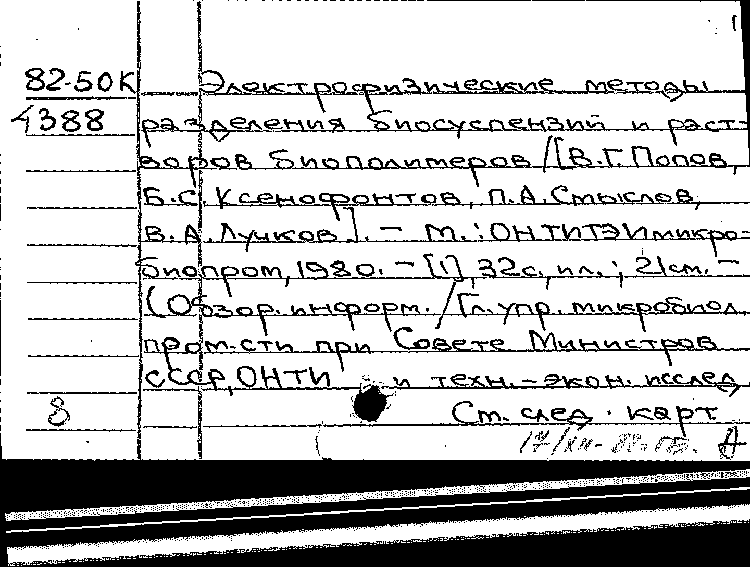 82-50К Электрофизические методы
4388 разделения биосуспензий и раст-
воров биополимеров /[В.Г. Попов,
Б.С. Ксенофонтов, П.А. Смыслов,
В.А. Лучков]. - М.: ОНТИТЭИмикро-
биопром, 1980. - [1], 32с., ил.; 21см. -
(Обзор. информ. /Гл. упр. микробиол.
пром-сти при Совете Министров
СССР, ОНТИ и техн.-экон. исслед.
8 См. след. карт.
А